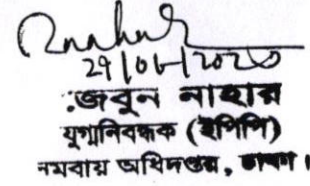 29/06/2020
জেবুন নাহার
যুগ্মনিবন্ধক (ইপিপি)
সমবায় অধিদপ্তর, ঢাকা।